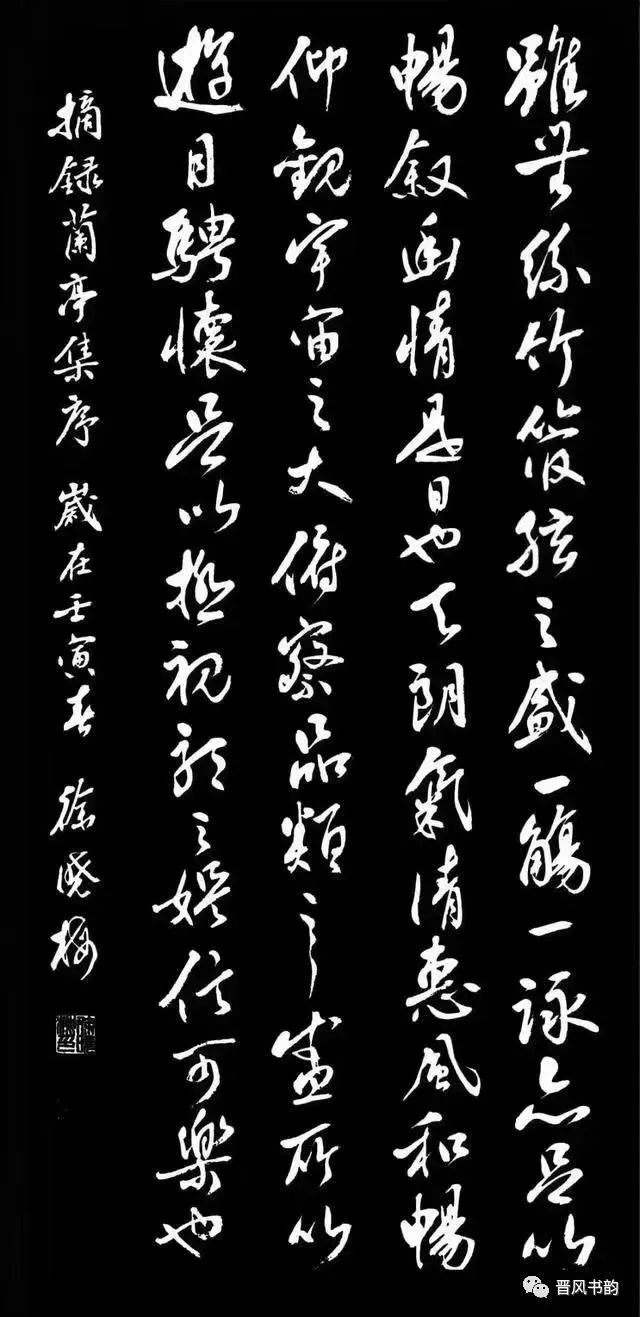 雖無絲竹管弦之盛一觴一詠亦足以
暢敘幽情是日也天朗氣清惠風和暢
仰觀宇宙之大俯察品類之盛所以
遊目騁懷足以極視聽之娛信可樂也
摘録蘭亭集序 歲在壬寅春 徐曉梅
晋风书韵